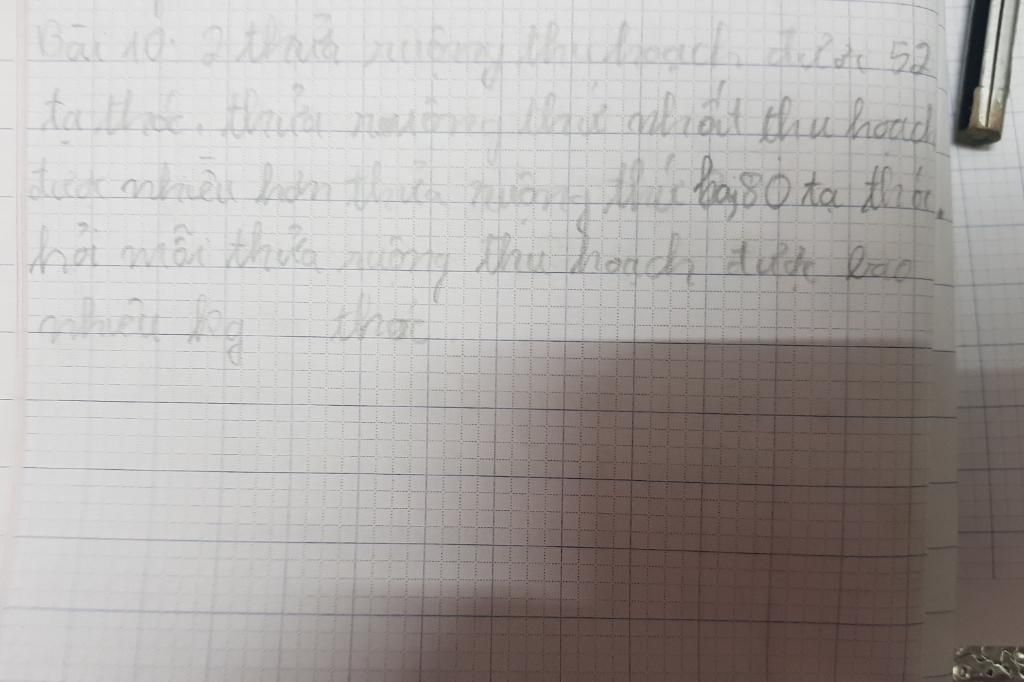 Bài 10. 2 thửa ruộng thu hoạch được 52
tạ thóc. thửa ruộng thứ nhất thu hoạch
được nhiều hơn thửa ruộng thứ hai 80 tạ thóc.
hỏi mỗi thửa ruộng thu hoạch được bao
nhiêu kg thóc